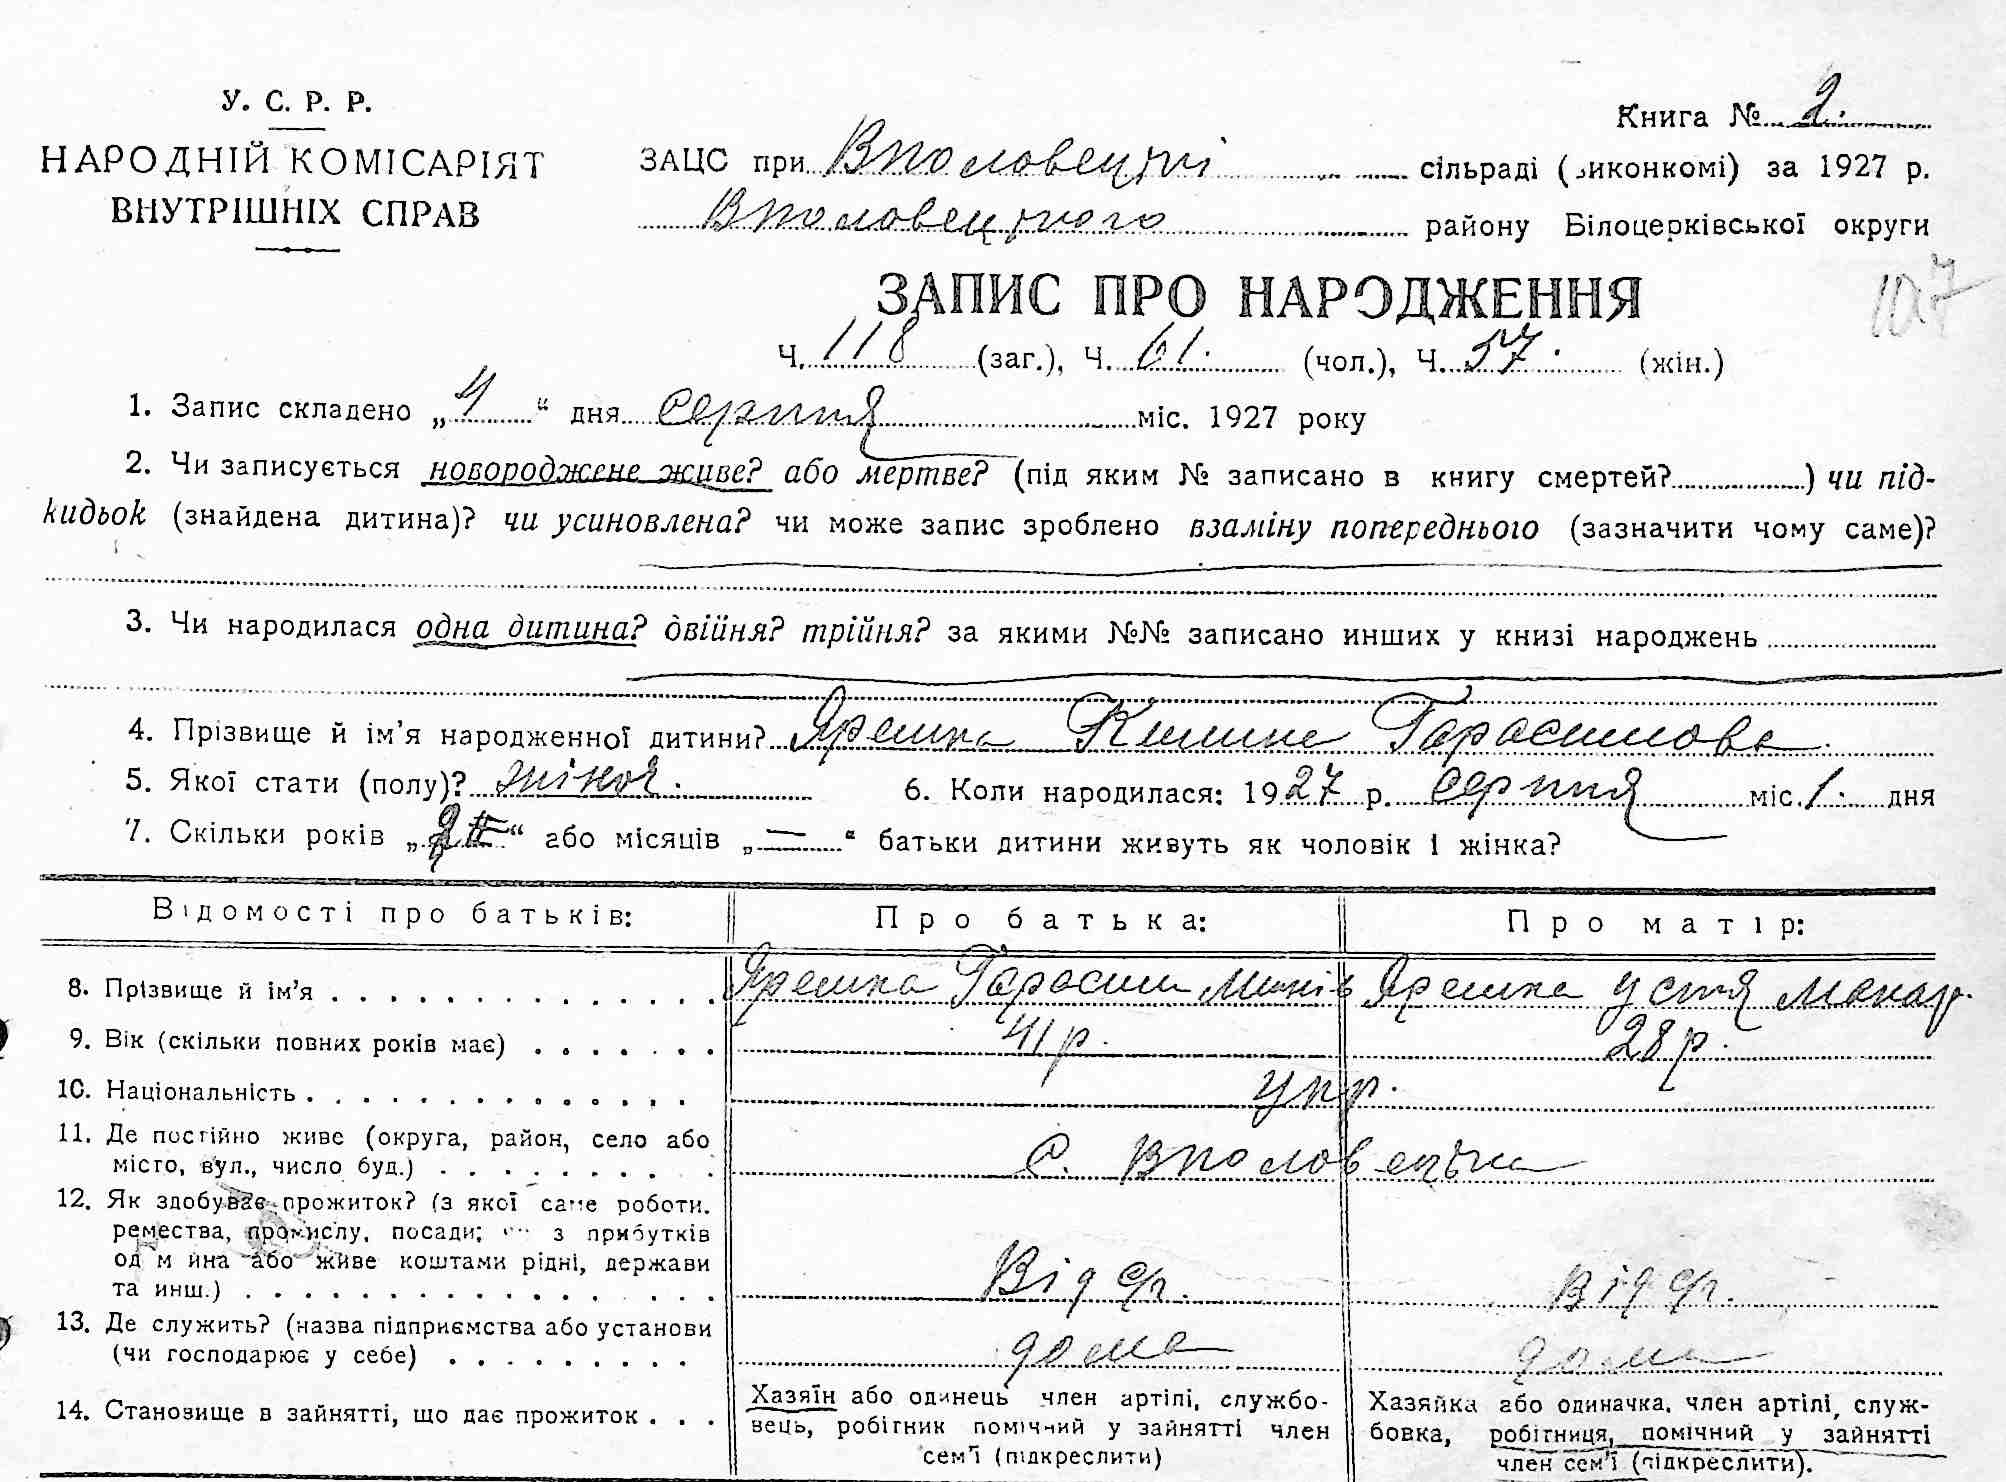 У. С. Р. Р.
НАРОДНІЙ КОМІСАРІЯТ
ВНУТРІШНІХ СПРАВ
Книга № 2.
ЗАЦС при Вполовецькі сільраді (виконкомі) за 1927 р.
Вполовецького району Білоцерківської округи
107
ЗАПИС ПРО НАРОДЖЕННЯ
Ч. 118 (заг.), Ч. 61. (чол.), Ч. 57. (жін.)
1. Запис складено „4“ дня серпня міс. 1927 року
2. Чи записується новороджене живе? або мертве? (під яким № записано в книгу смертей? ) чи під-
кидьок (знайдена дитина)? чи усиновлена? чи може запис зроблено взаміну попереднього (зазначити чому саме)?
3. Чи народилася одна дитина? двійня? трійня? за якими №№ записано инших у книзі народжень
4. Прізвище й ім’я народженної дитини? Ярешка Килина Гарасимова.
5. Якої стати (полу)? жіноч. 6. Коли народилася: 1927 р. серпня міс. 1. дня
7. Скільки років „ “ або місяців „—“ батьки дитини живуть як чоловік і жінка?
Відомості про батьків: Про батька: Про матір:
8. Прізвище й ім’я Ярешка Гарасим Минів Ярешка Устя Макар.
9. Вік (скільки повних років має) 41 р. 28 р.
10. Національність укр.
11. Де постійно живе (округа, район, село або
місто, вул., число буд.) с. Вполовецьке
12. Як здобуває прожиток? (з якої саме роботи,
ремества, промислу, посади; з прибутків
од майна або живе коштами рідні, держави
та инш.) Від с/г. Від с/г.
13. Де служить? (назва підприємства або установи
(чи господарює у себе) дома дома
14. Становище в зайнятті, що дає прожиток
Хазяїн або одинець член артілі, службо-
вець, робітник помічний у зайнятті член
сем’ї (підкреслити)
Хазяйка або одиначка, член артілі, служ-
бовка, робітниця, помічний у зайнятті
член сем’ї (підкреслити).